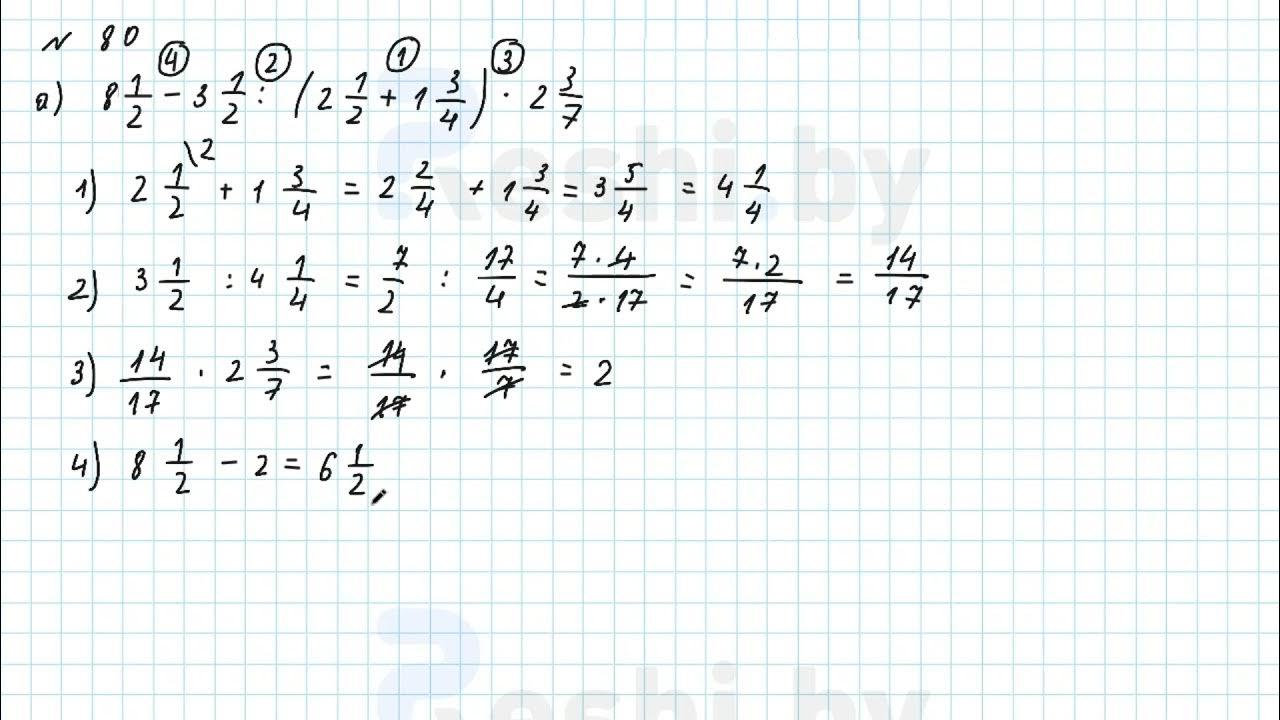 № 80
④ ② ① ③
а) 8 1/2 − 3 1/2 : (2 1/2 + 1 3/4) · 2 3/7
1) 2 1/2 \2 + 1 3/4 = 2 2/4 + 1 3/4 = 3 5/4 = 4 1/4
2) 3 1/2 : 4 1/4 = 7/2 : 17/4 = 7·4/2·17 = 7·2/17 = 14/17
3) 14/17 · 2 3/7 = 14/17 · 17/7 = 2
4) 8 1/2 − 2 = 6 1/2
Reshi.by
Reshi.by